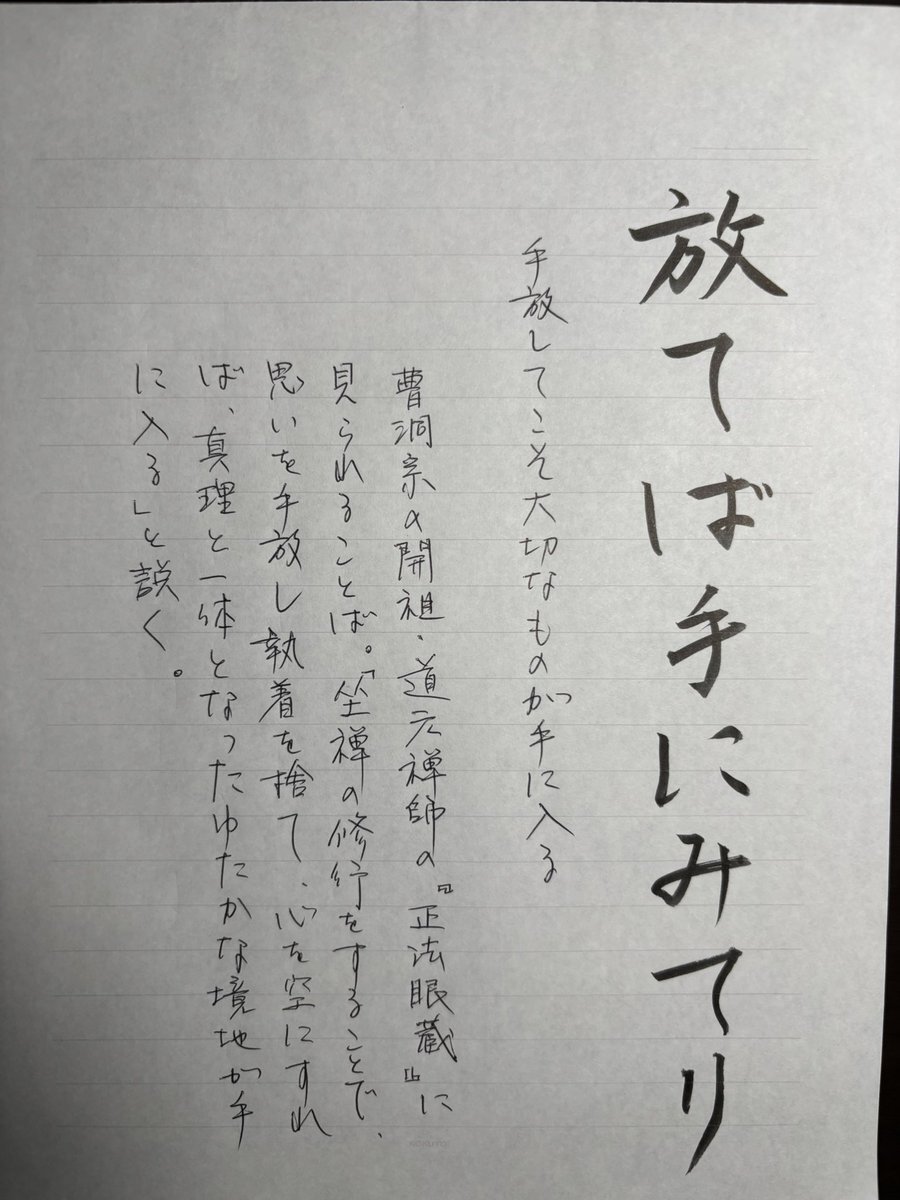 放てば手にみてり
手放してこそ大切なものが手に入る
曹洞宗の開祖・道元禅師の『正法眼蔵』に
見られることば。「坐禅の修行をすることで、
思いを手放し執着を捨て、心を空にすれ
ば、真理と一体となったゆたかな境地が手
に入る」と説く。